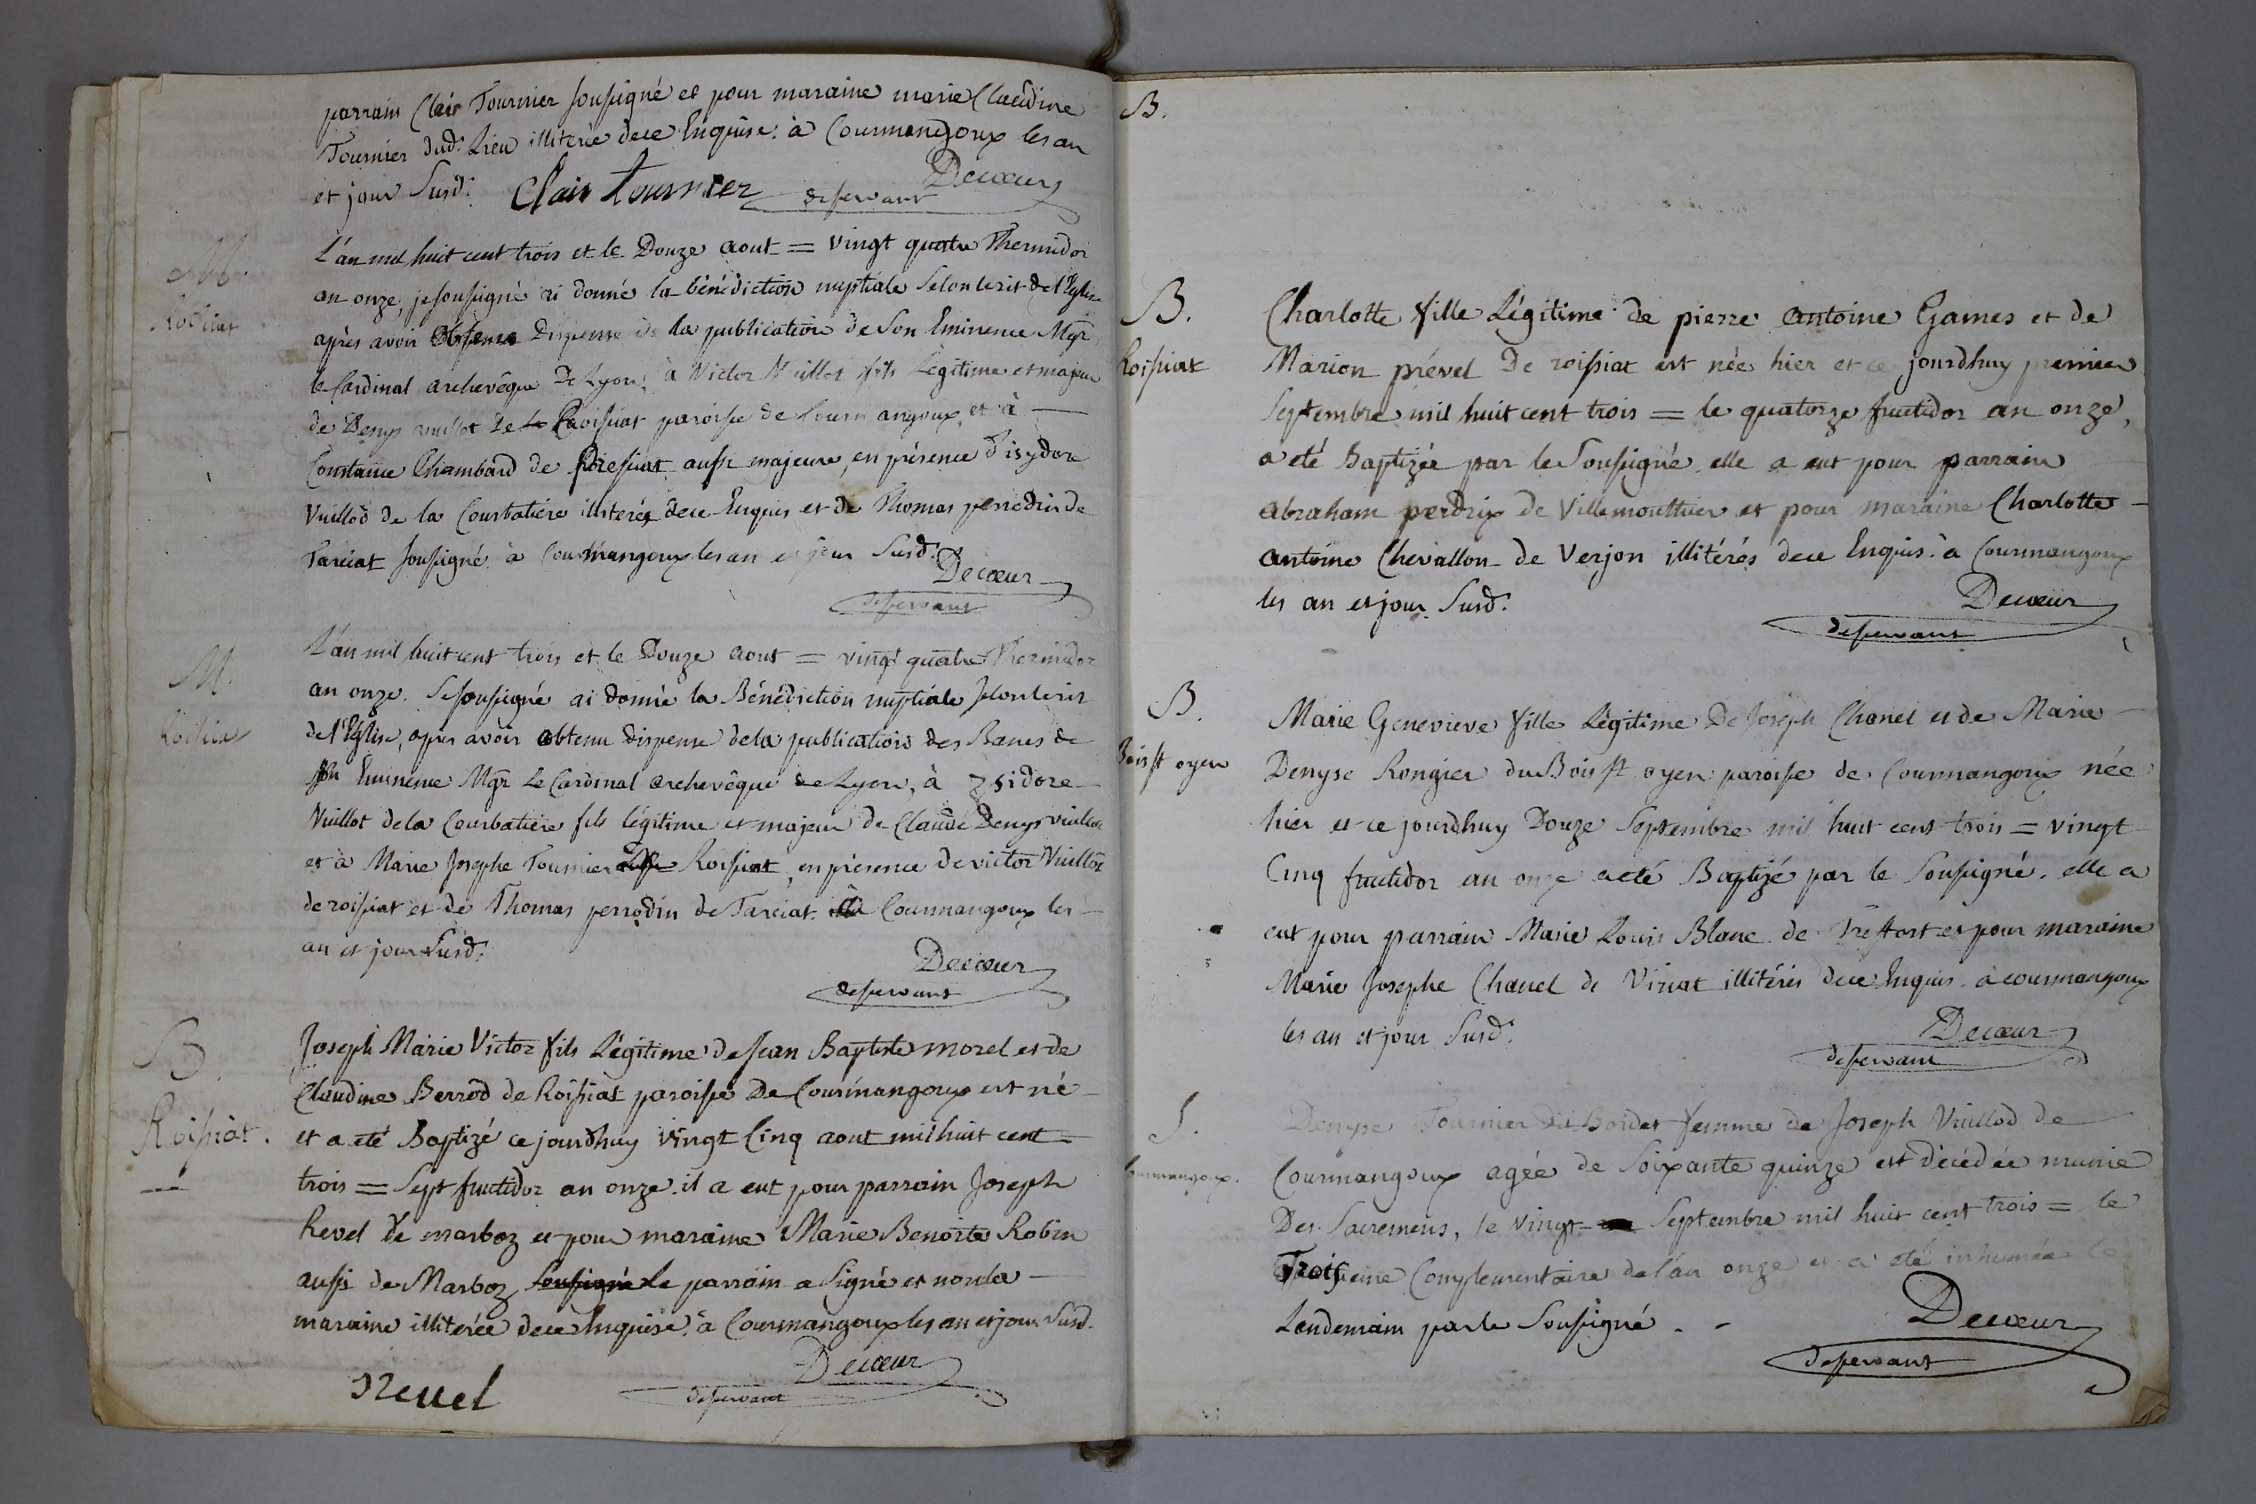 parrain Clair Tournier soussigné et pour maraine marie Claudine
Tournier dud. Lieu illiterée de ce Enquise. à Courmangoux les an
et jour Susd. Clair tournier Decœur
desservant
M.
Roissiat
L'an mil huit cent trois et le Douze aout = vingt quatre Thermidor
an onze, je soussigné ai donné la bénédiction nuptiale Selon le rit de l'Eglise
après avoir obtenu Dispense de la publication de Son Eminence Mgr
le Cardinal archevêque De Lyon, à Victor Vuillot fils Légitime et majeur
de Denys vuillot De Roissiat paroisse de Courmangoux, et à
Constance Chambard de Pressiat aussi majeure, en présence d'isydore
Vuillod de la Courbatiere illiteré de ce Enquis et de Thomas perrodin de
Tarciat soussigné à Courmangoux les an et jour Susd.
Decœur
desservant
M.
Roissiat
L'an mil huit cent trois et le Douze aout = vingt quatre Thermidor
an onze. Je soussigné ai donné la Bénédiction nuptiale selon le rit
de l'Eglise, apres avoir obtenu dispense de la publication des Bancs de
son Eminence Mgr Le Cardinal archevêque de Lyon, à Isidore
Vuillot de la Courbatiere fils légitime et majeur de Claude Denys vuillot
et à Marie Josephe Tournier de Roissiat, en présence de victor Vuillot
de roissiat et de Thomas perrodin de Tarciat. à Courmangoux les
an et jour Susd.
Decœur
desservant
B.
Roissiat.
Joseph Marie Victor fils Légitime de Jean Baptiste morel et de
Claudine Berrod de Roissiat paroisse De Courmangoux est né
et a eté Baptizé ce jourdhuy vingt Cinq aout mil huit cent
trois = Sept fructidor an onze. il a eut pour parrain Joseph
Revel de marboz et pour maraine Marie Benoite Robin
aussi de Marboz soussigné le parrain a Signé et non la
maraine illiterée de ce Enquise. à Courmangoux les an et jour Susd.
Decœur
Revel desservant
B.
B.
Roissiat
Charlotte fille Légitime de pierre antoine Games et de
Marion prével De roissiat est née hier et ce jourdhuy premier
Septembre mil huit cent trois = le quatorze fructidor an onze,
a eté Baptizée par le Soussigné. elle a eut pour parrain
abraham perdrix de Villemouthier et pour maraine Charlotte
antoine Chevallon de Verjon illitérés de ce Enquis. à Courmangoux
les an et jour Susd.
Decœur
desservant
B.
Bois st oyen
Marie Genevieve fille Légitime De Joseph Chanel et de Marie
Denyse Rongier du Bois st oyen paroisse de Courmangoux née
hier et ce jourdhuy Douze Septembre mil huit cent trois = vingt
Cinq fructidor an onze a eté Baptizé par le Soussigné. elle a
eut pour parrain Marie Louis Blanc de Treffort et pour maraine
Marie Josephe Chanel de Viriat illitérés de ce Enquis. à courmangoux
les an et jour Susd.
Decœur
desservant
S.
Courmangoux.
Denyse Tournier dit Bordet femme de Joseph Vuillod de
Courmangoux agée de Soixante quinze est décédée munie
Des Sacremens, le vingt Septembre mil huit cent trois = le
Troisieme Complementaire de l'an onze et a été inhumée le
Lendemain par le Soussigné.
Decœur
desservant